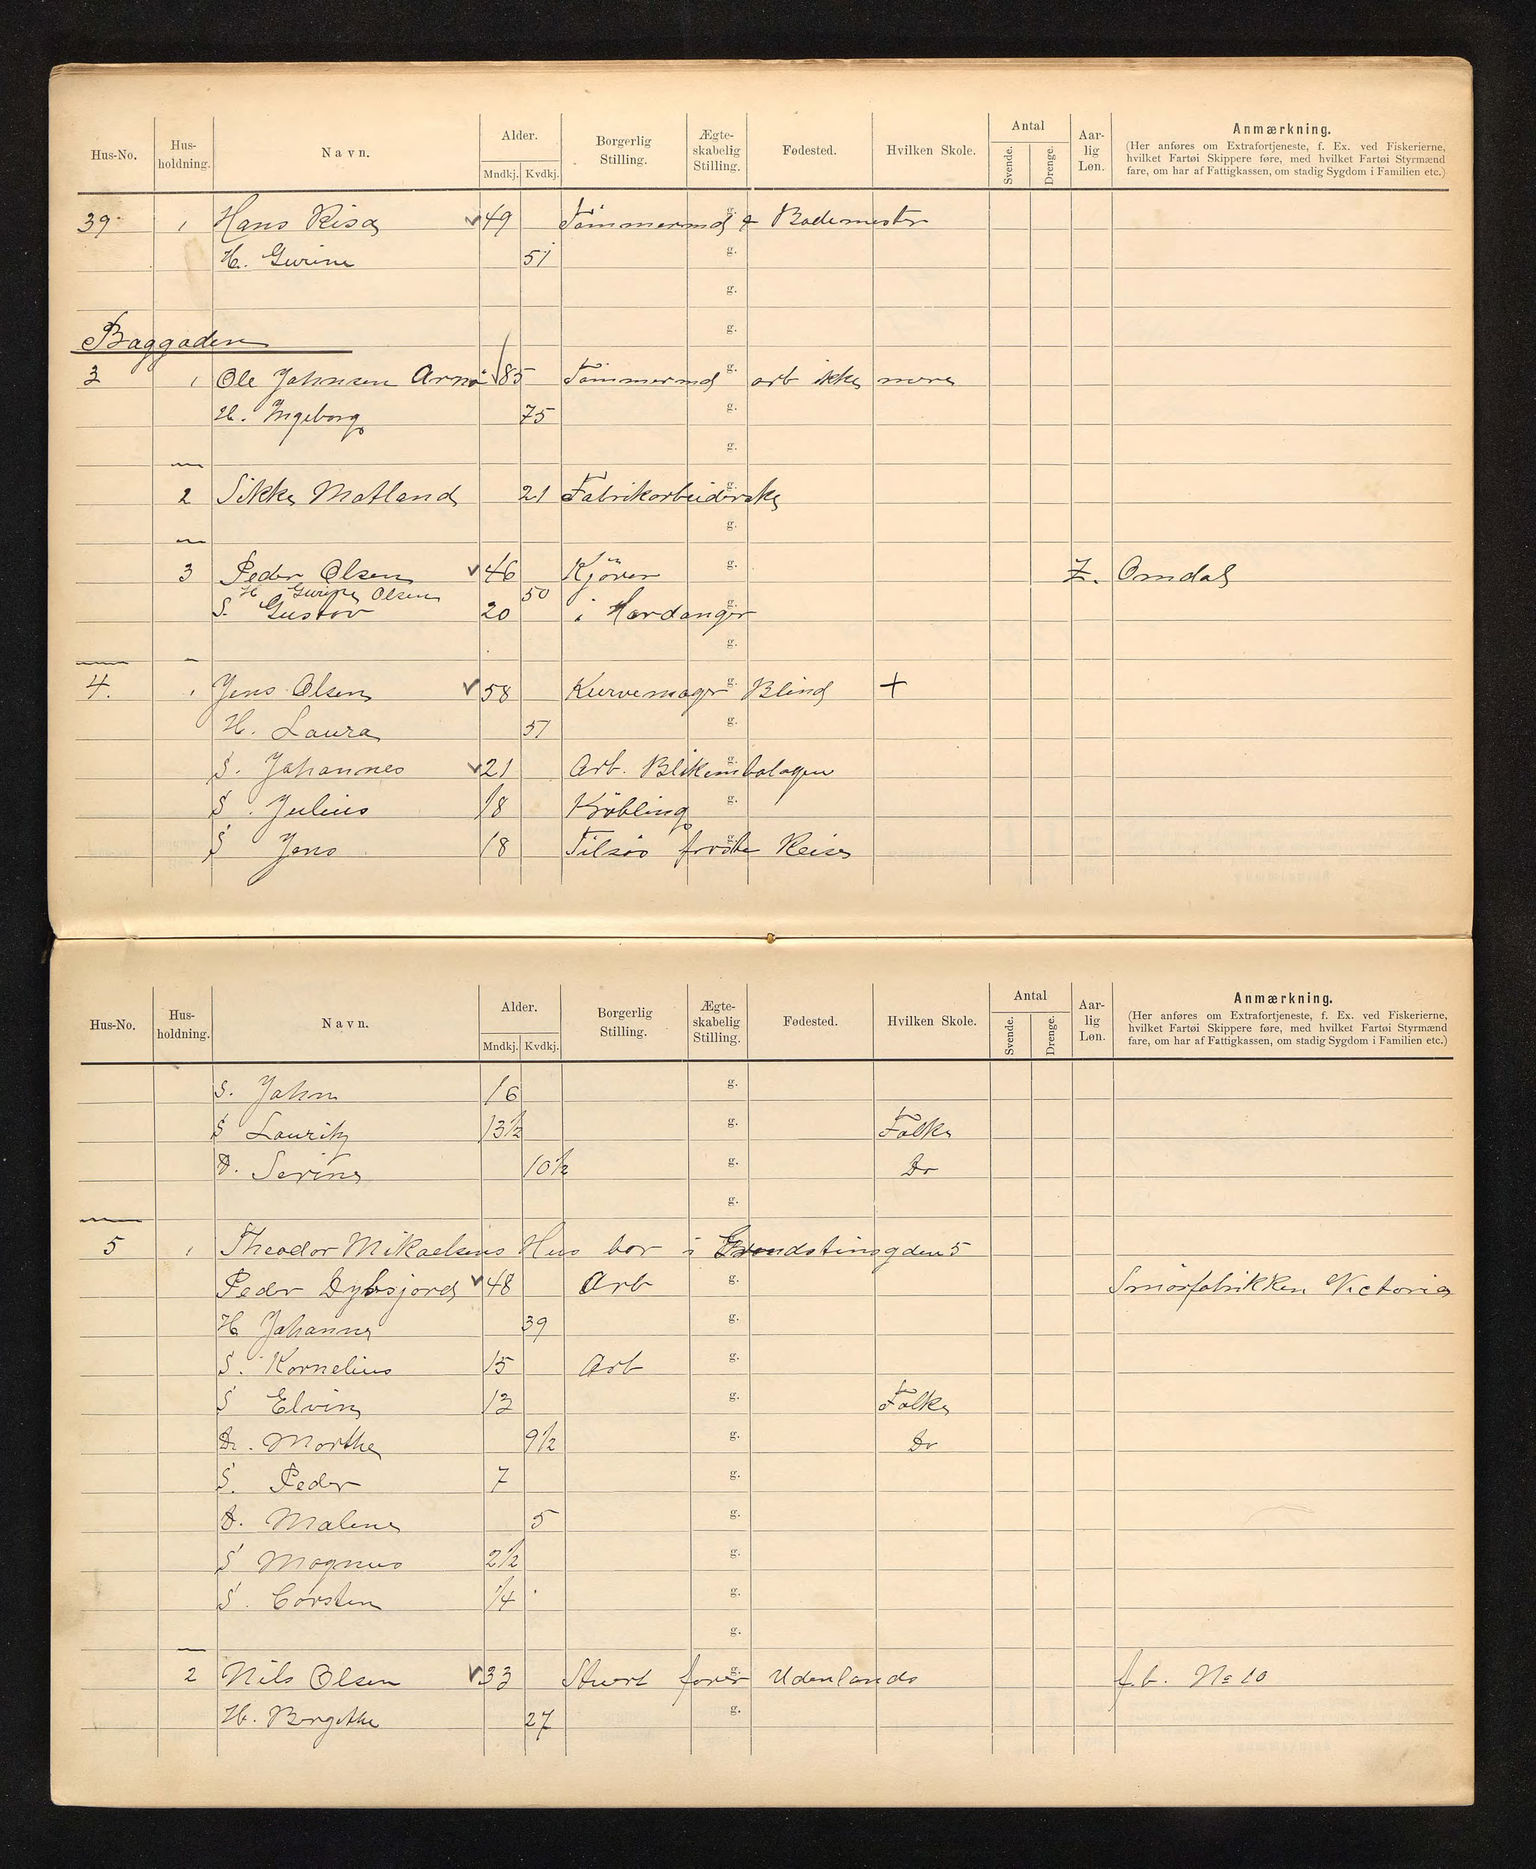 Hus-No. Hus-holdning. Navn. Alder. Mndkj. Kvdkj. Borgerlig Stilling. Ægte-skabelig Stilling. Fødested. Hvilken Skole. Antal Svende. Drenge. Aar-lig Løn. Anmærkning.
(Her anføres om Extrafortjeneste, f. Ex. ved Fiskerierne, hvilket Fartøi Skippere føre, med hvilket Fartøi Styrmænd fare, om har af Fattigkassen, om stadig Sygdom i Familien etc.)
39 1 Hans Risa 49 Tömmermd g. & Bademester
H. Gurine 51 g.
g.
Baggaden g.
3 1 Ole Johnsen Arnö 85 Tömmermd g. arb ikke mere
H. Ingeborg 75 g.
g.
2 Sikke Matland 21 Fabrikarbeiderske g.
g.
3 Peder Olsen 46 Kjörer g. Z. Omdal
H Gurine Olsen 50
S. Gustav 20 i Hardanger g.
g.
4. 1 Jens Olsen 58 Kurvemager g. Blind +
H. Laura 51 g.
S. Johannes 21 Arb. Blikembalagen g.
S. Julius 18 Kröbling g.
S Jens 18 Tilsøs første Reise g.
Hus-No. Hus-holdning. Navn. Alder. Mndkj. Kvdkj. Borgerlig Stilling. Ægte-skabelig Stilling. Fødested. Hvilken Skole. Antal Svende. Drenge. Aar-lig Løn. Anmærkning.
(Her anføres om Extrafortjeneste, f. Ex. ved Fiskerierne, hvilket Fartøi Skippere føre, med hvilket Fartøi Styrmænd fare, om har af Fattigkassen, om stadig Sygdom i Familien etc.)
S. John 16 g.
S Lauritz 13½ g. Folke
D. Serine 10½ g. Do
g.
5 1 Theodor Mikaelsens Hus bor i 5
Peder Dybsjord 48 Arb g. Smörfabrikken Victoria
H Johanne 39 g.
S. Kornelius 15 Arb g.
S Elvin 13 g. Folke
D. Marthe 9½ g. Do
S. Peder 7 g.
D. Malene 5 g.
S Magnus 2½ g.
S. Torsten ¼ g.
g.
2 Nils Olsen 33 Stuert farer g. Udenlands f.b. No 10
H. Bergithe 27 g.